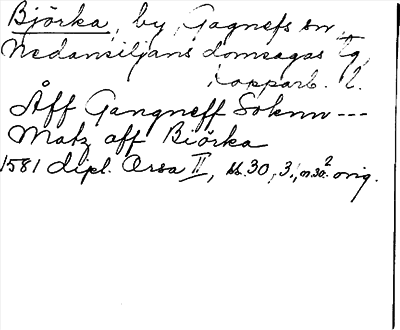 Björka, by, Gagnefs sn,
Nedansiljans domsagas tg,
Kopparb. l.
Åff Gangneff Soknn ---
Matz aff Biörka
1581 dipl. Orsa II, bl. 30, 31, m 30² orig.